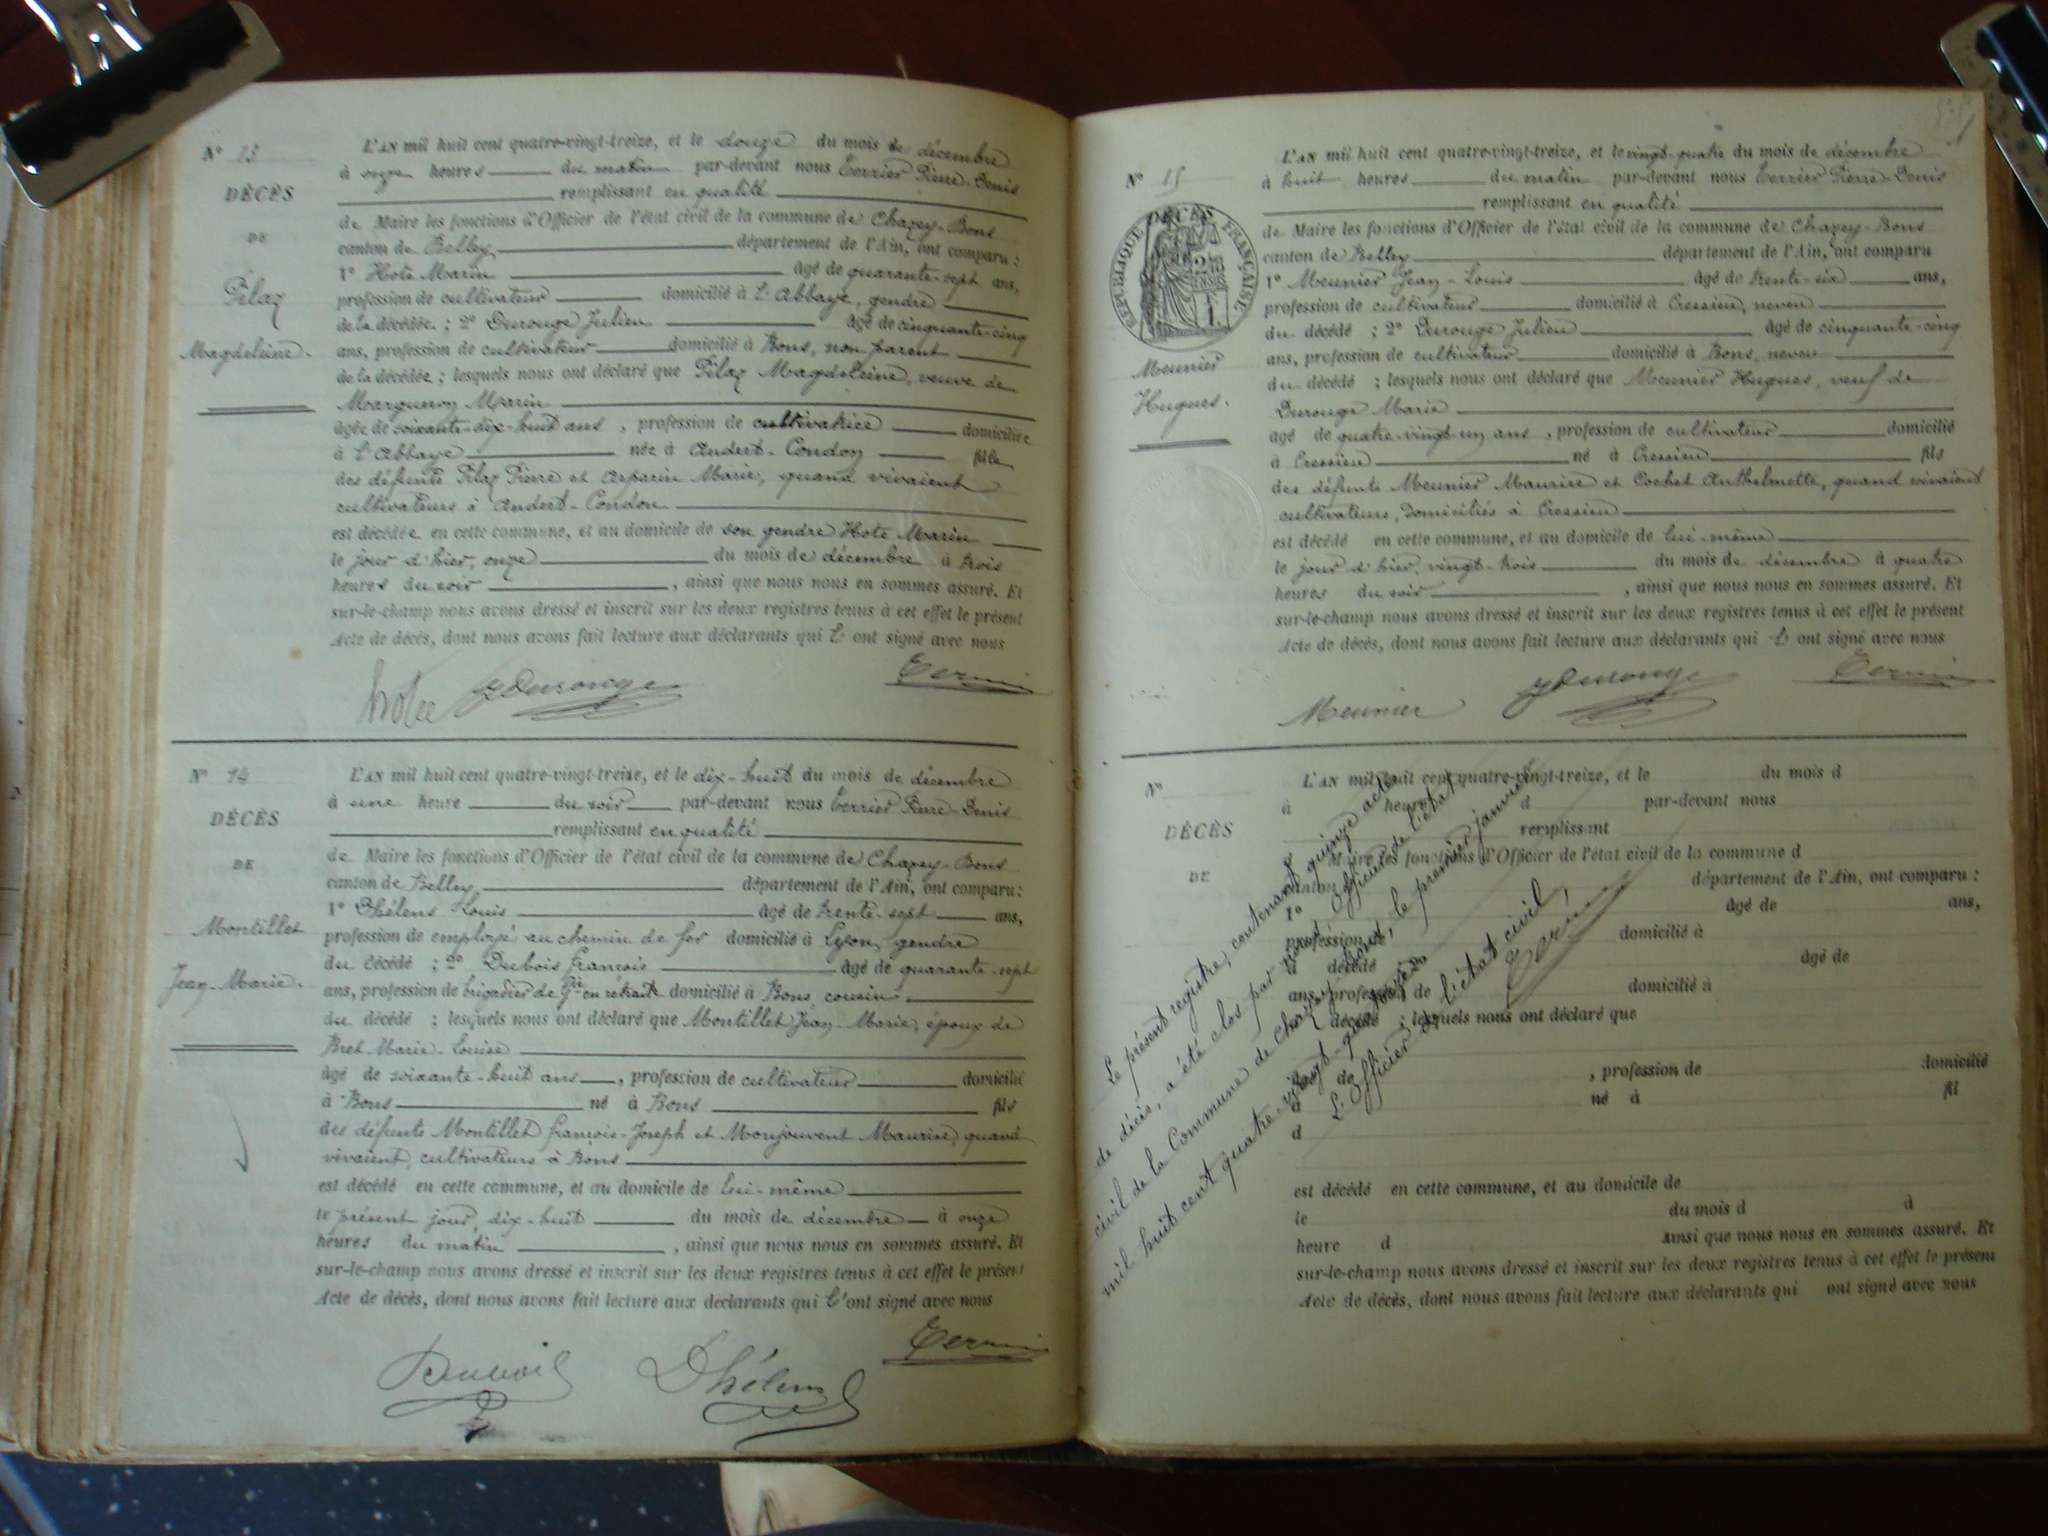 N° 13
DÉCÈS
DE
Pilaz
Magdeleine.
L'AN mil huit cent quatre-vingt-treize, et le douze du mois de décembre
à onze heures du matin par-devant nous Terrier Pierre-Denis
remplissant en qualité
de Maire les fonctions d'Officier de l'état civil de la commune de Chazey-Bons
canton de Belley, département de l'Ain, ont comparu :
1° Hote Marin âgé de quarante-sept ans,
profession de cultivateur domicilié à L'Abbaye, gendre
de la décédée ; 2° Durouge Julien âgé de cinquante-cinq
ans, profession de cultivateur domicilié à Bons, non parent
de la décédée ; lesquels nous ont déclaré que Pilaz Magdeleine, veuve de
Marqueron Marin
âgée de soixante-dix-huit ans, profession de cultivatrice domiciliée
à L'Abbaye née à Andert-Condon fille
des défunts Pilaz Pierre et Marie, quand vivaient
cultivateurs à Andert-Condon
est décédée en cette commune, et au domicile de son gendre Hote Marin
le jour d'hier, onze du mois de décembre à trois
heures du soir, ainsi que nous nous en sommes assuré. Et
sur-le-champ nous avons dressé et inscrit sur les deux registres tenus à cet effet le présent
Acte de décès, dont nous avons fait lecture aux déclarants qui l' ont signé avec nous
hote JDurouge Terrier
N° 14
DÉCÈS
DE
Montillet
Jean-Marie.
L'AN mil huit cent quatre-vingt-treize, et le dix-huit du mois de décembre
à une heure du soir par-devant nous Terrier Pierre-Denis
remplissant en qualité
de Maire les fonctions d'Officier de l'état civil de la commune de Chazey-Bons
canton de Belley, département de l'Ain, ont comparu :
1° Dhélens Louis âgé de trente-sept ans,
profession de employé au chemin de fer domicilié à Lyon, gendre
du décédé ; 2° Dubois François âgé de quarante-sept
ans, profession de brigadier de Gie en retraite domicilié à Bons, cousin
du décédé ; lesquels nous ont déclaré que Montillet Jean-Marie, époux de
Bret Marie-Louise
âgé de soixante-huit ans, profession de cultivateur domicilié
à Bons né à Bons fils
des défunts Montillet François-Joseph et Monjouvent Maurise, quand
vivaient, cultivateurs à Bons
est décédé en cette commune, et au domicile de lui-même
le présent jour, dix-huit du mois de décembre à onze
heures du matin, ainsi que nous nous en sommes assuré. Et
sur-le-champ nous avons dressé et inscrit sur les deux registres tenus à cet effet le présent
Acte de décès, dont nous avons fait lecture aux déclarants qui l'ont signé avec nous
Dubois Dhélens Terrier
N° 15
DÉCÈS
RÉPUBLIQUE FRANÇAISE
Meunier
Hugues.
L'AN mil huit cent quatre-vingt-treize, et le vingt-quatre du mois de décembre
à huit heures du matin par-devant nous Terrier Pierre-Denis
remplissant en qualité
de Maire les fonctions d'Officier de l'état civil de la commune de Chazey-Bons
canton de Belley département de l'Ain, ont comparu
1° Meunier Jean-Louis âgé de trente-six ans,
profession de cultivateur domicilié à Cressieu, neveu
du décédé ; 2° Durouge Julien âgé de cinquante-cinq
ans, profession de cultivateur domicilié à Bons, neveu
du décédé ; lesquels nous ont déclaré que Meunier Hugues, veuf de
Durouge Marie
âgé de quatre-vingt-un ans, profession de cultivateur domicilié
à Cressieu né à Cressieu fils
des défunts Meunier Maurice et Cochet Anthelmette, quand vivaient
cultivateurs, domiciliés à Cressieu
est décédé en cette commune, et au domicile de lui-même
le jour d'hier, vingt-trois du mois de décembre à quatre
heures du soir, ainsi que nous nous en sommes assuré. Et
sur-le-champ nous avons dressé et inscrit sur les deux registres tenus à cet effet le présent
Acte de décès, dont nous avons fait lecture aux déclarants qui l' ont signé avec nous
Meunier JDurouge Terrier
N°
DÉCÈS
DE
L'AN mil huit cent quatre-vingt-treize, et le du mois d
à heure d par-devant nous
remplissant
Maire les fonctions d'Officier de l'état civil de la commune d
canton d département de l'Ain, ont comparu :
1° âgé de ans,
profession de domicilié à
d décédé âgé de
ans, profession de domicilié à
décédé ; lesquels nous ont déclaré que
âgé de , profession de domicilié
à né à fil
d
est décédé en cette commune, et au domicile de
le du mois d à
heure d ainsi que nous nous en sommes assuré. Et
sur-le-champ nous avons dressé et inscrit sur les deux registres tenus à cet effet le présent
Acte de décès, dont nous avons fait lecture aux déclarants qui ont signé avec nous
Le présent registre, contenant quinze actes
de décès, a été clos par nous Officier de l'état
civil de la Commune de Chazey-Bons, le premier janvier
mil huit cent quatre-vingt-quatorze
L'Officier de l'état civil,
Terrier